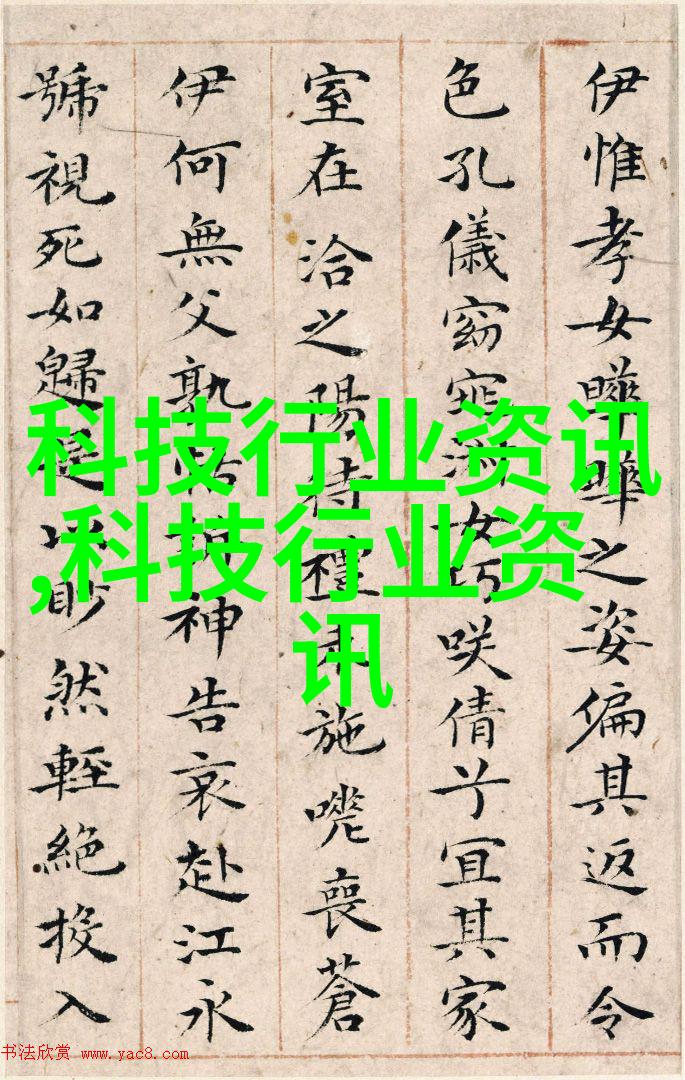 伊惟孝女曄曄之姿偏其返而令
色孔儀窈窕淑女巧咲倩兮宜其家
室在洽之陽待禮未施嗟喪蒼
伊何無父孰怙訴神告哀赴江永
號視死如歸是以眇然輕絕投入
科技行业资讯
,科技行业资
讯
书法欣赏 www.yac8.com